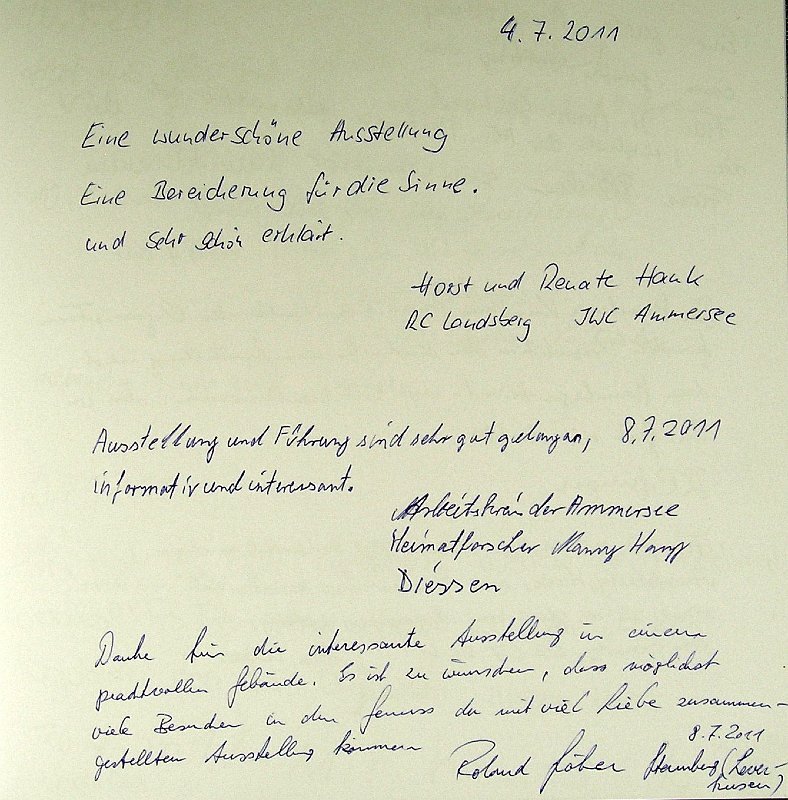 4.7.2011
Eine wunderschöne Ausstellung
Eine Bereicherung für die Sinne.
und sehr schön erklärt.
Horst und Renate Hank
RC Landsberg IWC Ammersee
Ausstellung und Führung sind sehr gut gelungen, 8.7.2011
informativ und interessant.
Arbeitskreis der Ammersee
Heimatforscher
Diessen
Danke für die interessante Ausstellung in einem
prachtvollen Gebäude. Es ist zu wünschen, dass möglichst
viele Besucher in den Genuss der mit viel Liebe zusammen-
gestellten Ausstellung kommen
8.7.2011
Roland